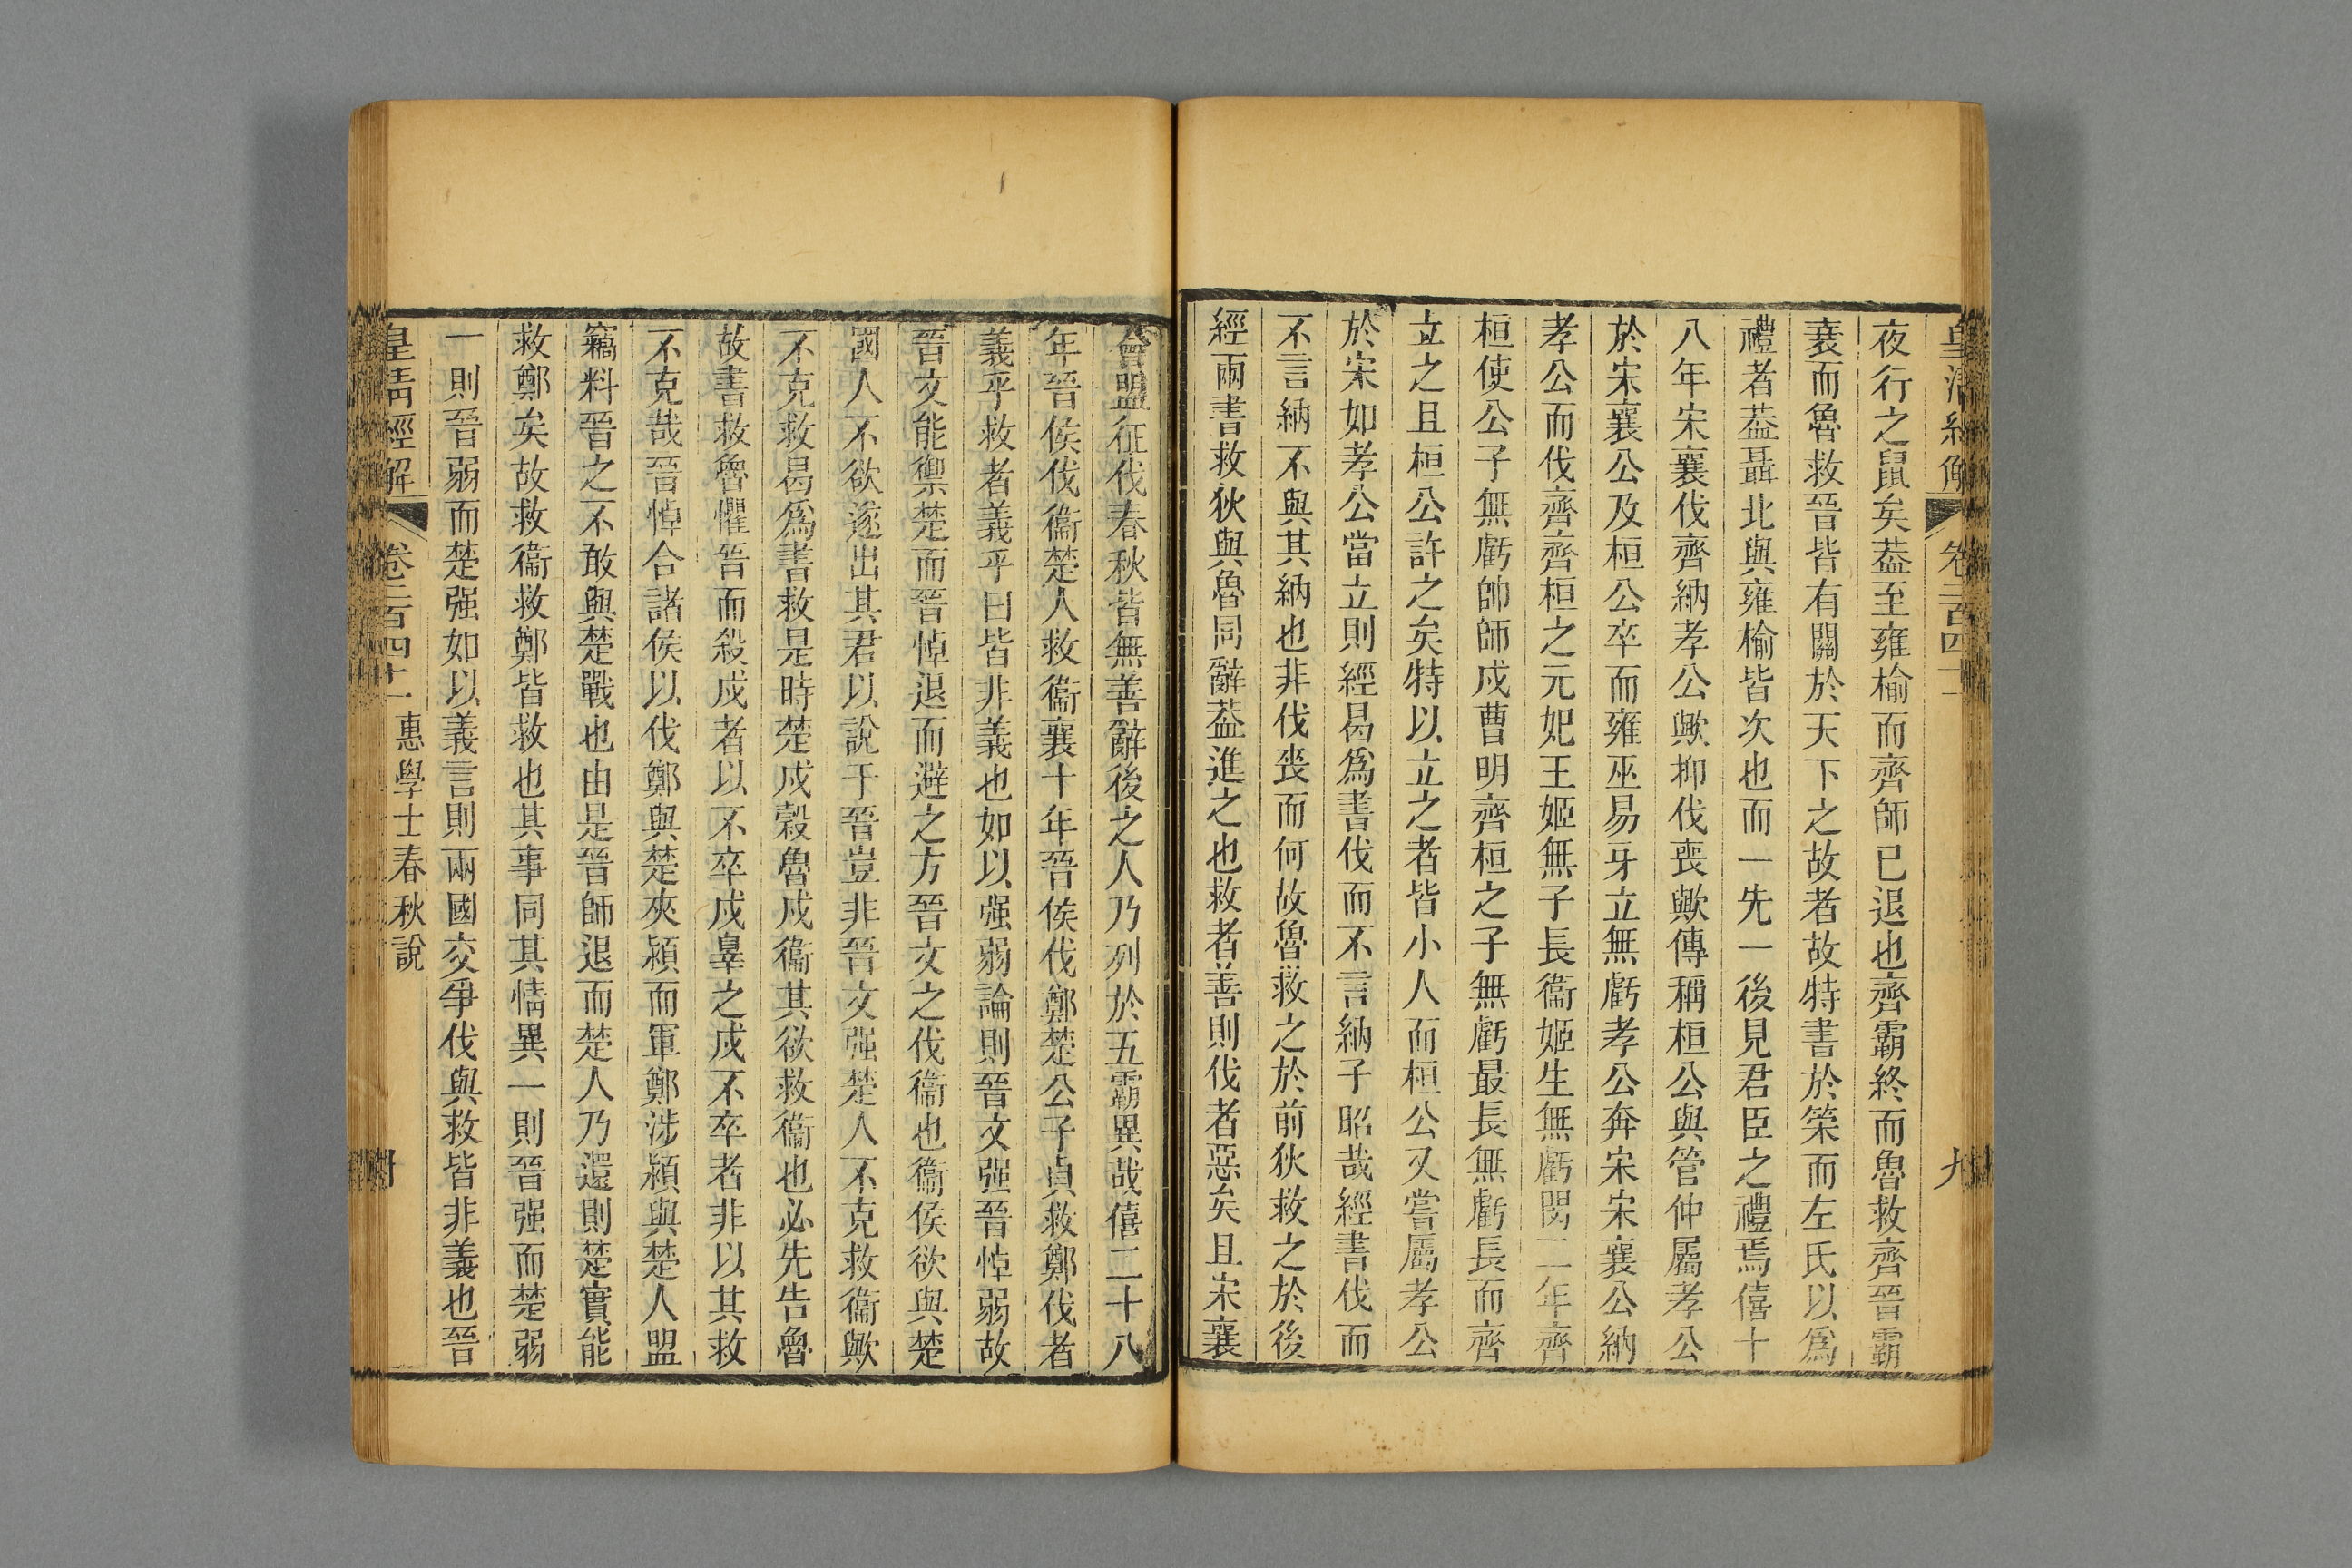 皇清經解
卷二百四十一
九
夜行之鼠矣葢至雍榆而齊師已退也齊霸終而魯救齊晉霸
衰而魯救晉皆有關於天下之故者故特書於筞而左氏以爲
禮者葢聶北與雍榆皆次也而一先一後見君臣之禮焉僖十
八年宋襄伐齊納孝公歟抑伐喪歟傳稱桓公與管仲屬孝公
於宋襄公及桓公卒而雍巫易牙立無虧孝公奔宋宋襄公納
孝公而伐齊齊桓之元妃王姬無子長衞姬生無虧閔二年齊
桓使公子無虧帥師戍曹明齊桓之子無虧最長無虧長而齊
立之且桓公許之矣特以立之者皆小人而桓公又嘗屬孝公
於宋如孝公當立則經曷爲書伐而不言納子昭哉經書伐而
不言納不與其納也非伐喪而何故魯救之於前狄救之於後
經兩書救狄與魯同辭葢進之也救者善則伐者惡矣且宋襄
會盟征伐春秋皆無善辭後之人乃列於五霸異哉僖二十八
年晉侯伐衞楚人救衞襄十年晉侯伐鄭楚公子貞救鄭伐者
義乎救者義乎曰皆非義也如以强弱論則晉文强晉悼弱故
晉文能禦楚而晉悼退而避之方晉文之伐衞也衞侯欲與楚
國人不欲遂出其君以說于晉豈非晉文强楚人不克救衞歟
不克救曷爲書救是時楚戍穀魯戍衞其欲救衞也必先告魯
故書救魯懼晉而殺戍者以不卒戍辠之戍不卒者非以其救
不克哉晉悼合諸侯以伐鄭與楚夾潁而軍鄭涉潁與楚人盟
竊料晉之不敢與楚戰也由是晉師退而楚人乃還則楚實能
救鄭矣故救衞救鄭皆救也其事同其情異一則晉强而楚弱
一則晉弱而楚强如以義言則兩國交爭伐與救皆非義也晉
皇清經解
卷二百四十一
惠學士春秋說